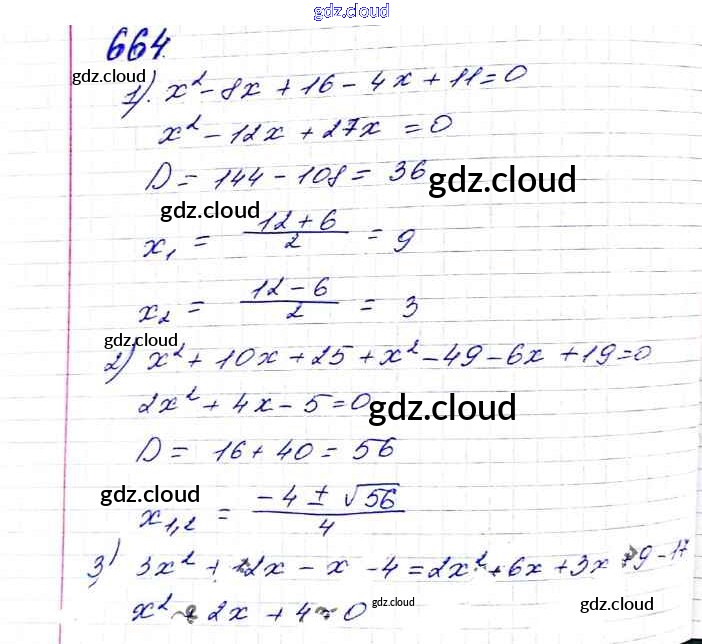 gdz.cloud
664.
gdz.cloud
1). x² - 8x + 16 - 4x + 11 = 0
x² - 12x + 27x = 0
D = 144 - 108 = 36
gdz.cloud
gdz.cloud
x₁ = (12 + 6)/2 = 9
x₂ = (12 - 6)/2 = 3
gdz.cloud
2) x² + 10x + 25 + x² - 49 - 6x + 19 = 0
2x² + 4x - 5 = 0
gdz.cloud
D = 16 + 40 = 56
gdz.cloud
x₁,₂ = (-4 ± √56)/4
3) 3x² + 12x - x - 4 = 2x² + 6x + 3x + 9 - 17
x² + 2x + 4 = 0
gdz.cloud
gdz.cloud